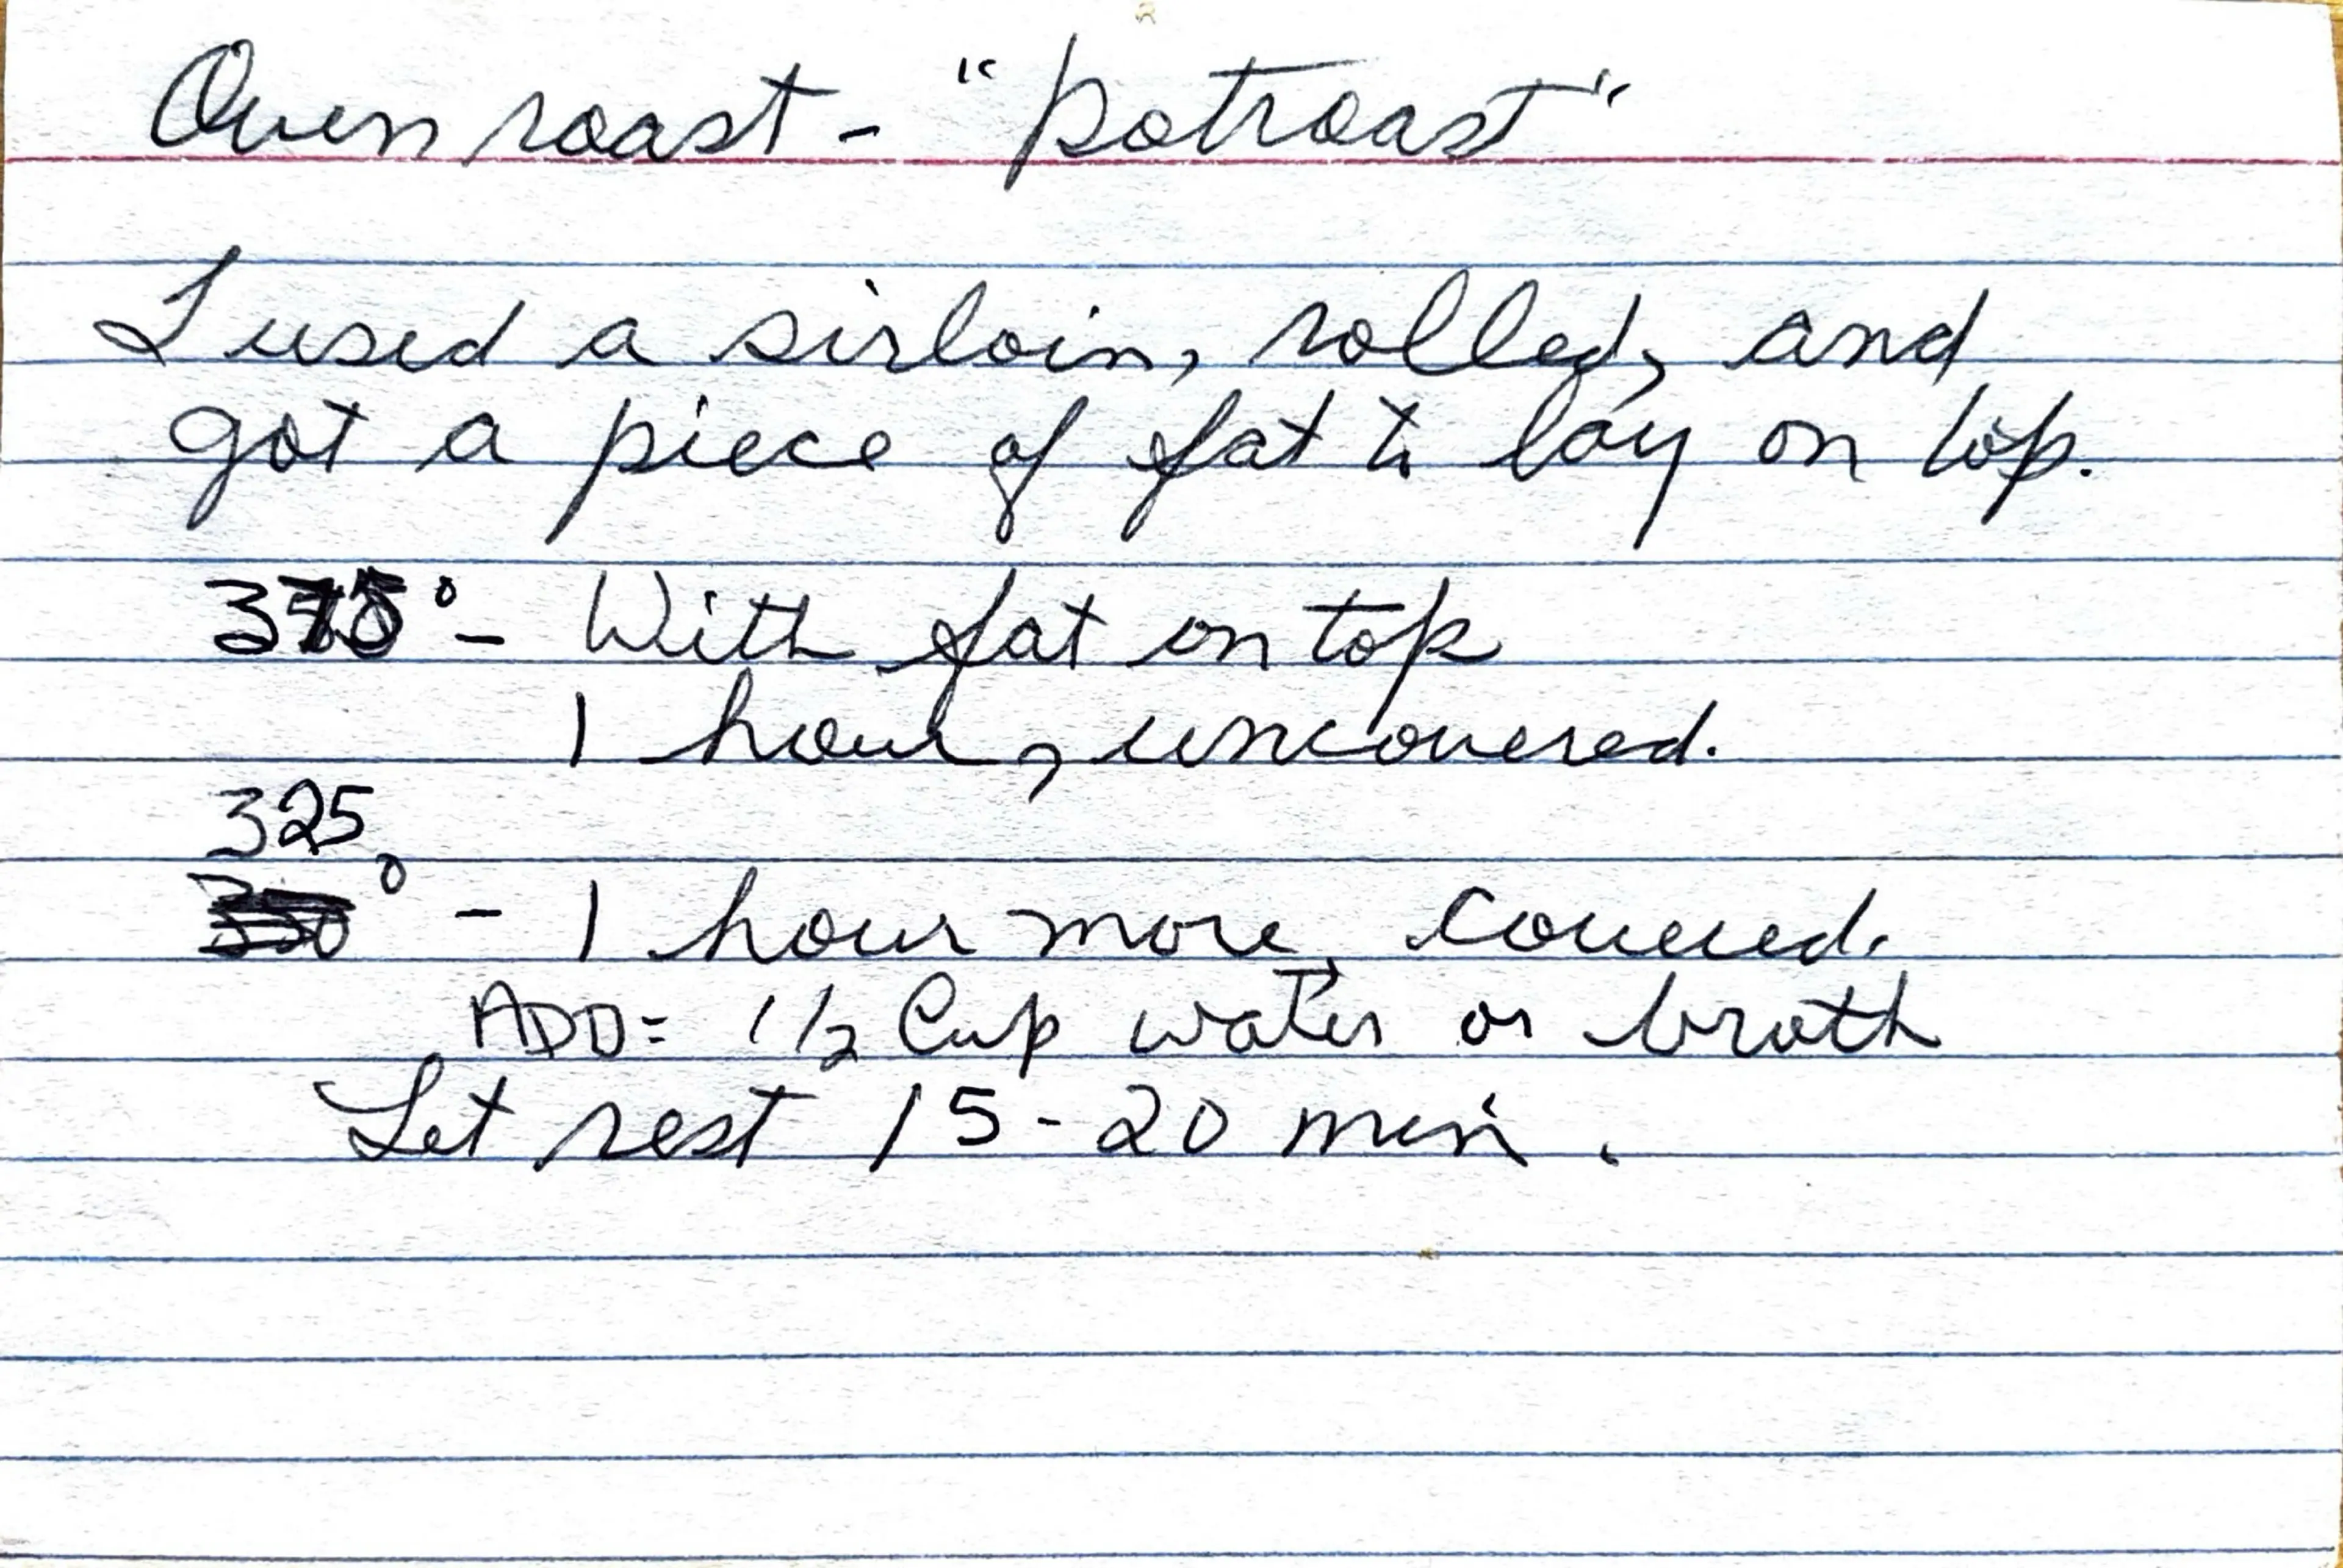 Oven roast - "potroast"
I used a sirloin, rolled, and
got a piece of fat to lay on top.
375° - With fat on top
1 hour, uncovered.
325
° - 1 hour more, covered.
ADD = 1 1/2 Cup water or broth
Let rest 15-20 min.